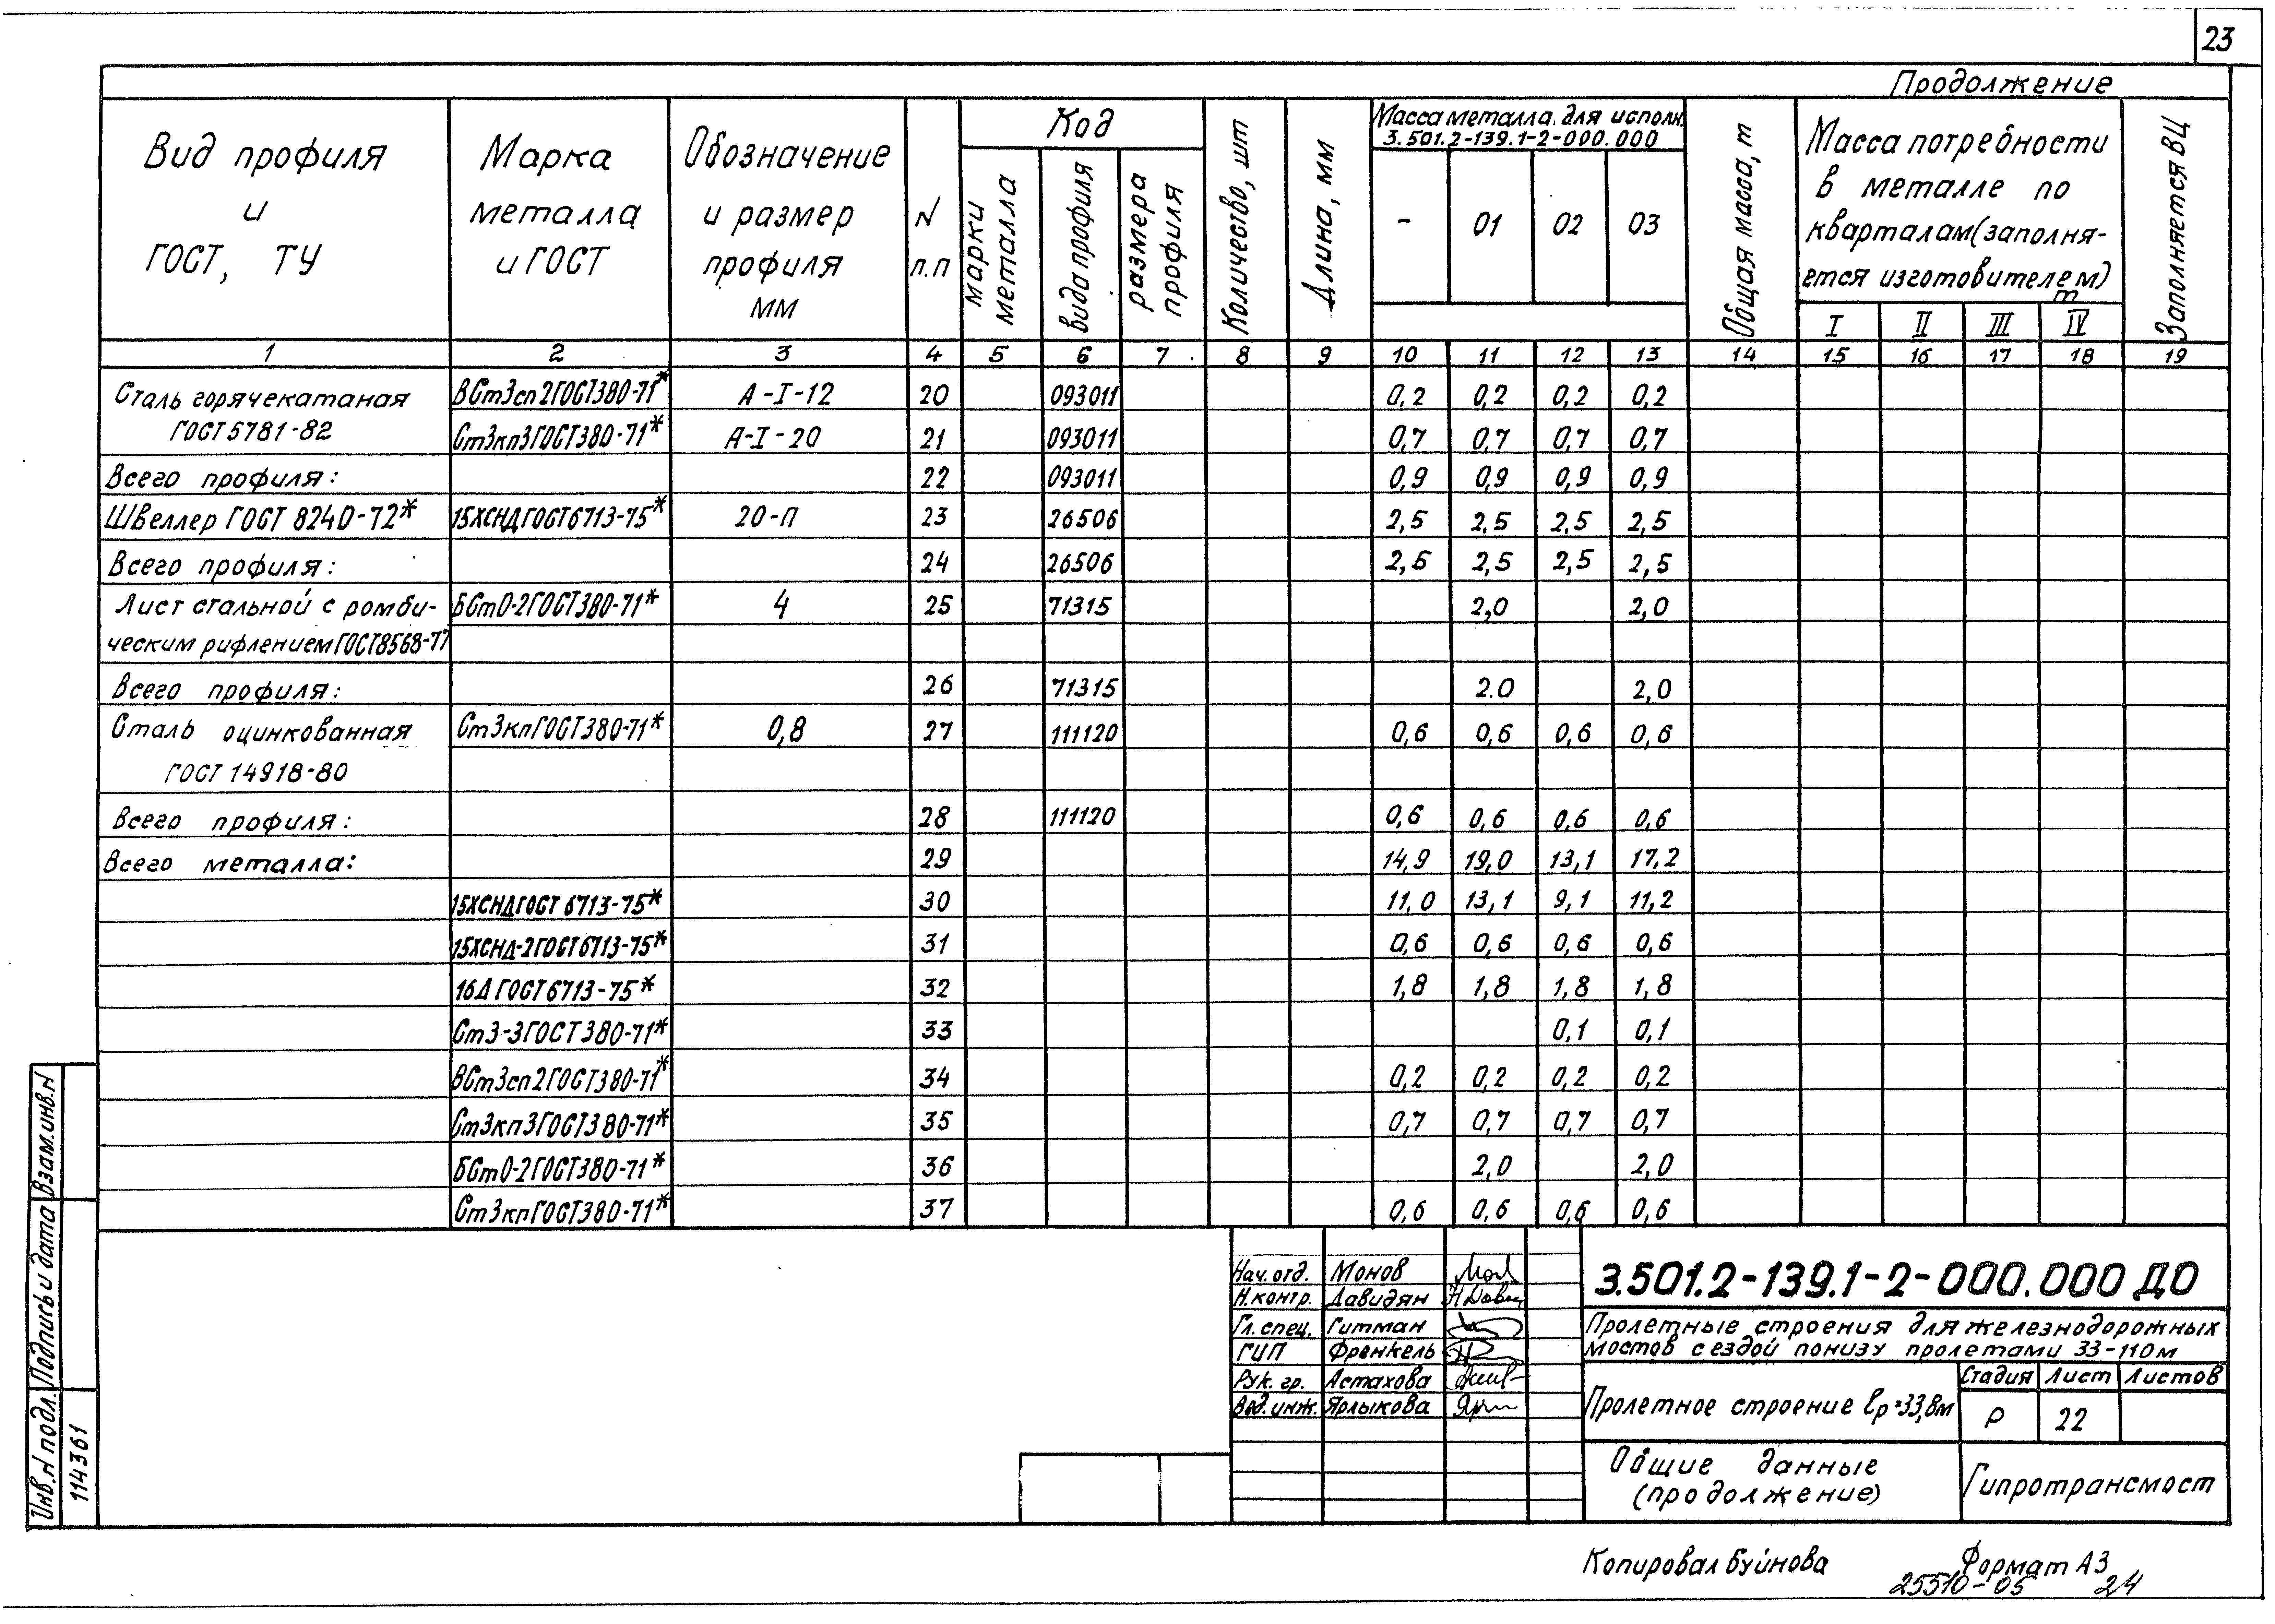 23
Продолжение
Вид профиля и ГОСТ, ТУ
Марка металла и ГОСТ
Обозначение и размер профиля мм
N п.п
Код
марки металла
вида профиля
размера профиля
Количество, шт
Длина, мм
Масса металла для исполн. 3.501.2-139.1-2-000.000
- 01 02 03
Общая масса, т
Масса потребности в металле по кварталам (заполняется изготовителем) т
I II III IV
Заполняется ВЦ
1 2 3 4 5 6 7 8 9 10 11 12 13 14 15 16 17 18 19
Сталь горячекатаная ВСт3сп2ГОСТ380-71* А-I-12 20 093011 0,2 0,2 0,2 0,2
ГОСТ5781-82 Ст3кп3ГОСТ380-71* А-I-20 21 093011 0,7 0,7 0,7 0,7
Всего профиля: 22 093011 0,9 0,9 0,9 0,9
Швеллер ГОСТ 8240-72* 15ХСНДГОСТ6713-75* 20-П 23 26506 2,5 2,5 2,5 2,5
Всего профиля: 24 26506 2,5 2,5 2,5 2,5
Лист стальной с ромби- БСт0-2ГОСТ380-71* 4 25 71315 2,0 2,0
ческим рифлениемГОСТ8568-77
Всего профиля: 26 71315 2.0 2,0
Сталь оцинкованная Ст3кпГОСТ380-71* 0,8 27 111120 0,6 0,6 0,6 0,6
ГОСТ 14918-80
Всего профиля: 28 111120 0,6 0,6 0,6 0,6
Всего металла: 29 14,9 19,0 13,1 17,2
15ХСНДГОСТ 6713-75* 30 11,0 13,1 9,1 11,2
15ХСНД-2ГОСТ6713-75* 31 0,6 0,6 0,6 0,6
16Д ГОСТ6713-75* 32 1,8 1,8 1,8 1,8
Ст3-3ГОСТ380-71* 33 0,1 0,1
ВСт3сп2ГОСТ380-71* 34 0,2 0,2 0,2 0,2
Ст3кп3ГОСТ380-71* 35 0,7 0,7 0,7 0,7
БСт0-2ГОСТ380-71* 36 2,0 2,0
Ст3кпГОСТ380-71* 37 0,6 0,6 0,6 0,6
Взам.инв.N
Подпись и дата
Инв.N подл.
114361
Нач.отд. Монов
Н.контр. Давидян
Гл.спец. Гитман
ГИП Френкель
Рук. гр. Астахова
Вед.инж. Ярлыкова
3.501.2-139.1-2-000.000 ДО
Пролетные строения для железнодорожных
мостов с ездой понизу пролетами 33-110м
Пролетное строение lр=33,8м
Стадия Лист Листов
Р 22
Общие данные
(продолжение)
Гипротрансмост
Копировал Буйнова
Формат А3
25510-05 24